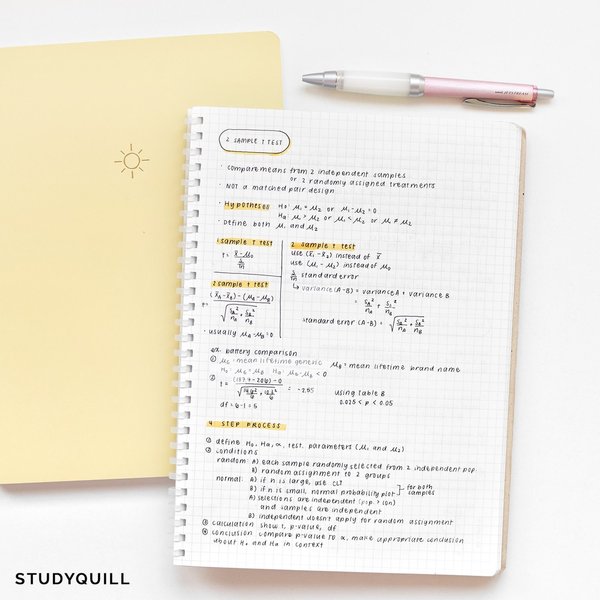 2 SAMPLE T TEST
· compare means from 2 independent samples
or 2 randomly assigned treatments
· NOT a matched pair design
· Hypotheses H₀: μ₁ = μ₂ or μ₁ - μ₂ = 0
Hₐ: μ₁ > μ₂ or μ₁ < μ₂ or μ₁ ≠ μ₂
· Define both μ₁ and μ₂
1 sample t test
t = (x̄ - μ₀) / (s/√n)
2 sample t test
(x̄A - x̄B) - (μA - μB)
t = √(sA²/nA + sB²/nB)
· usually μA - μB = 0
2 sample t test
use (x̄₁ - x̄₂) instead of x̄
use (μ₁ - μ₂) instead of μ₀
s/√n standard error
↳ variance (A-B) = variance A + variance B
= sA²/nA + sB²/nB
standard error (A-B) = √(sA²/nA + sB²/nB)
ex. battery comparison
① μG = mean lifetime generic μB = mean lifetime brand name
H₀: μG = μB Hₐ: μG - μB < 0
② t =
df = 6-1 = 5
using table B
0.025 < p < 0.05
4 STEP PROCESS
① define H₀, Hₐ, α, test, parameters (μ₁ and μ₂)
② conditions
random: A) each sample randomly selected from 2 independent pop.
B) random assignment to 2 groups
normal: A) if n is large, use CLT
B) if n is small, normal probability plot } for both samples
A) selections are independent (pop > 10n)
and samples are independent
B) independent doesn't apply for random assignment
③ calculation show t, p-value, df
④ conclusion compare p-value to α, make appropriate conclusion
about H₀ and Hₐ in context
STUDYQUILL